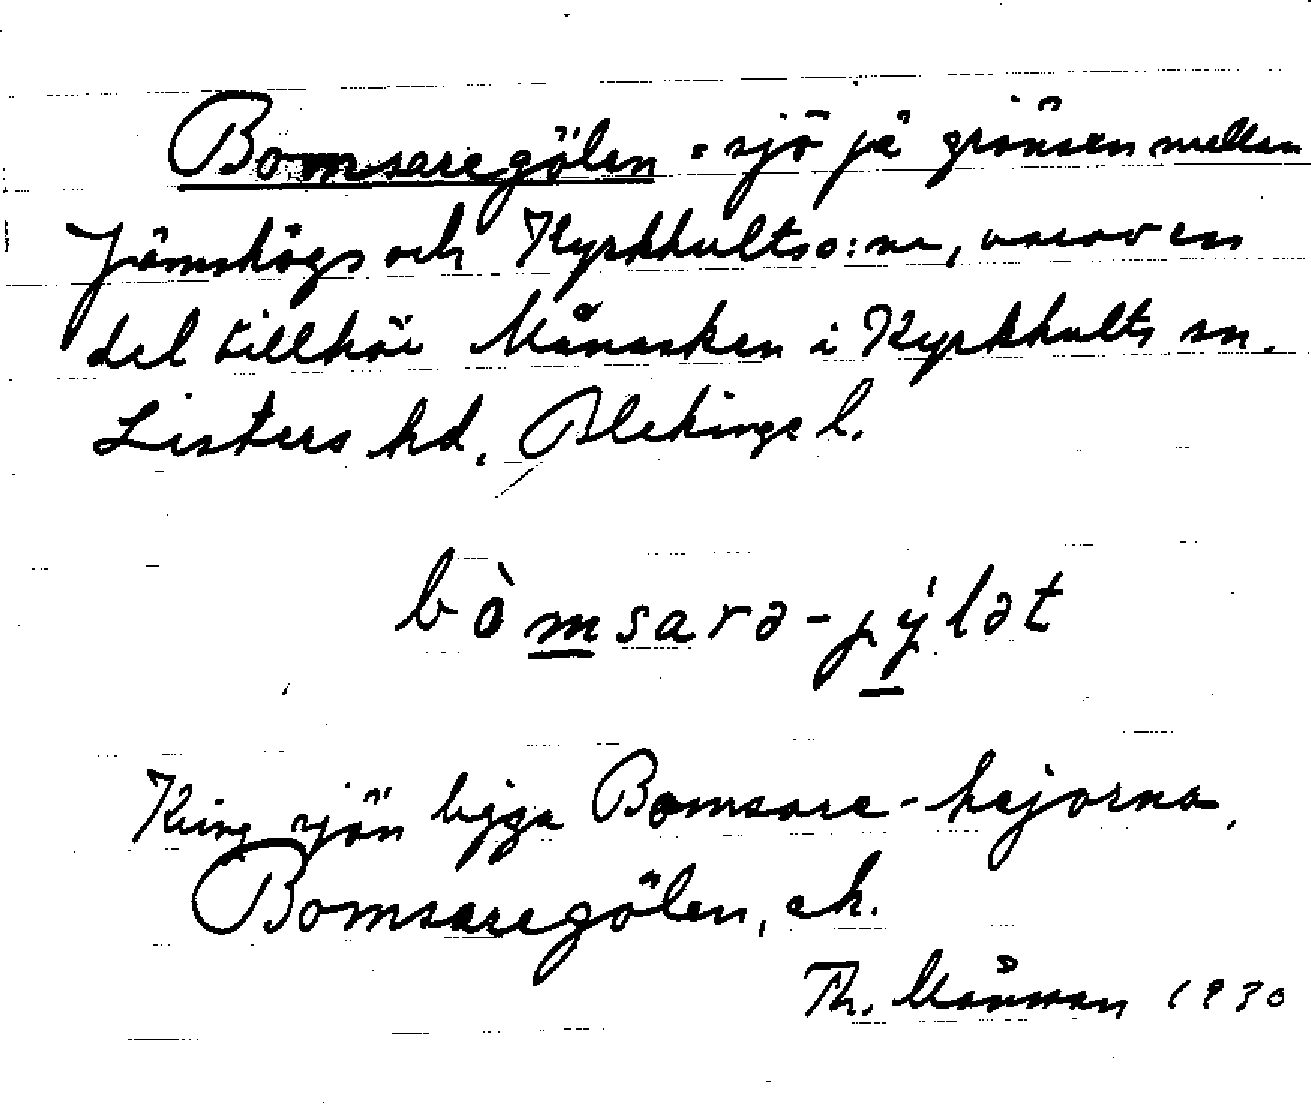 Bomsaregölen = sjö på gränsen mellan
Jämshögs och Kyrkhults s:nr, varav en
del tillhör Månasken i Kyrkhults sn.
Listers hd, Blekinge l.
bòmsarə-pýlət
Kring sjön ligga Bomsare-hejorna,
Bomsaregölen, ek.
Th. Månsson 1930